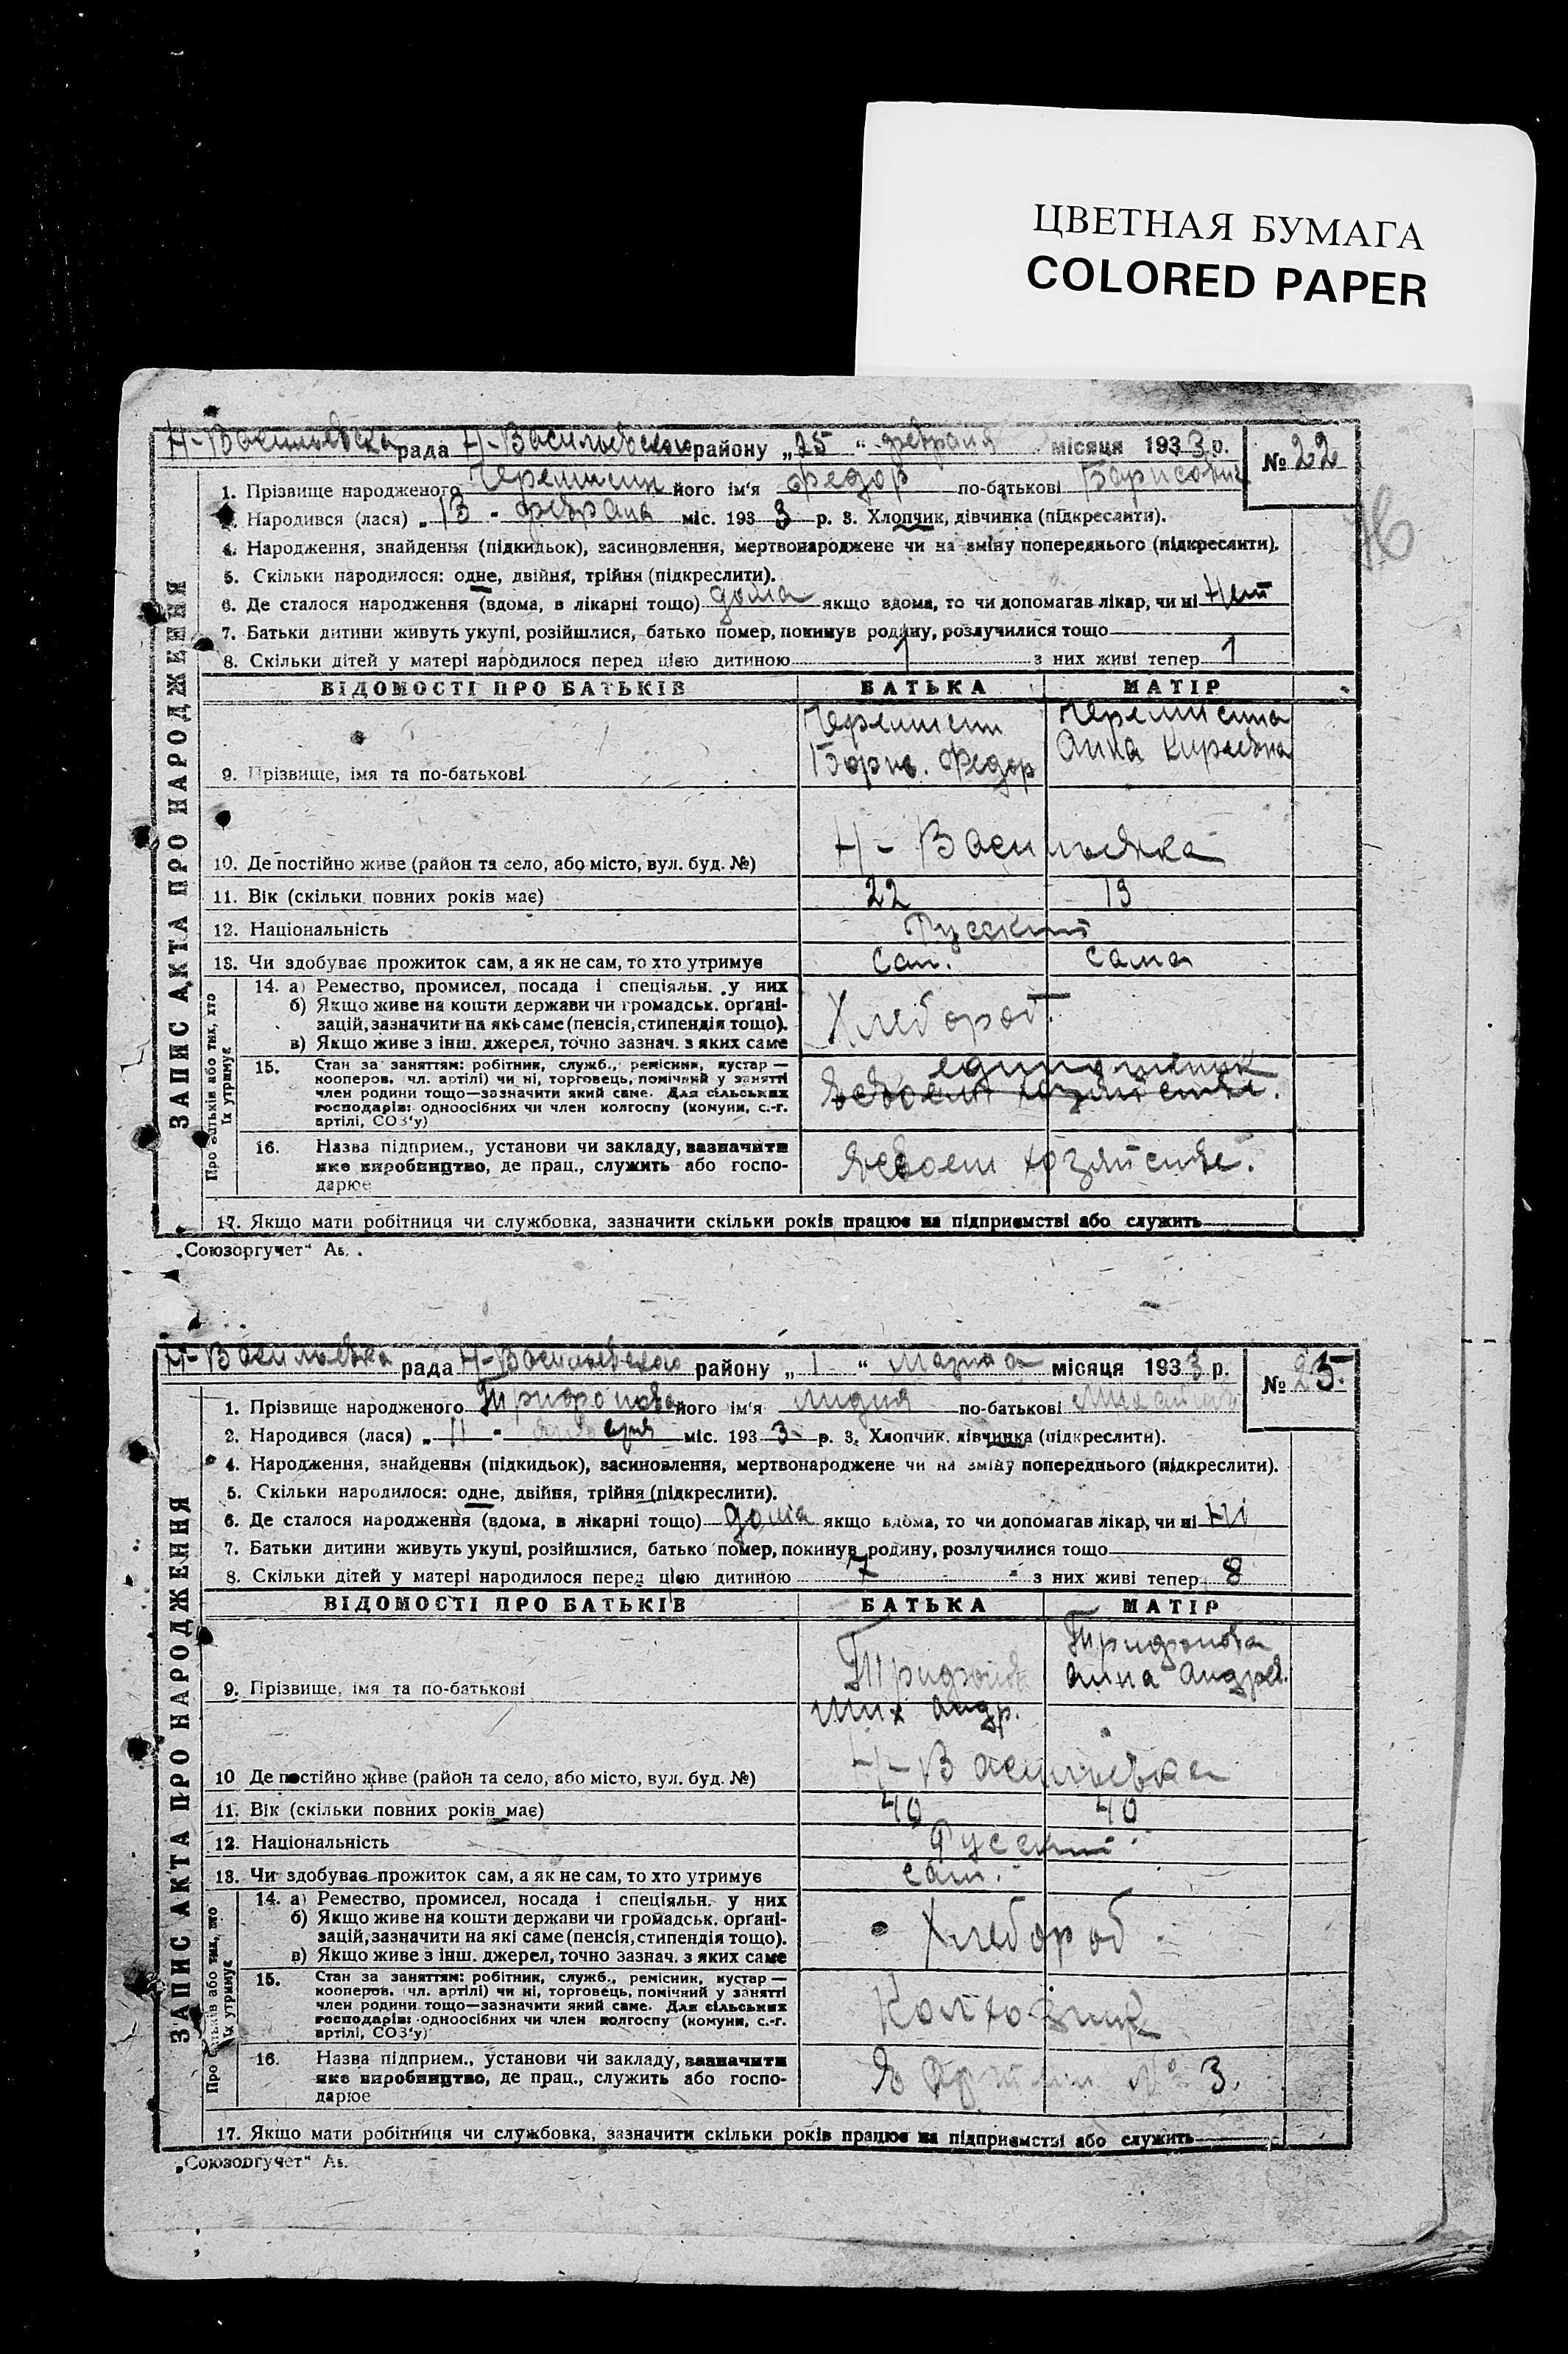 ЦВЕТНАЯ БУМАГА
COLORED PAPER
Н-Васильевска рада Н-Васильевского району „25“ февраля місяця 1933 р. № 22
1. Прізвище народженого Черемисин його ім‘я Федор по-батькові Барисович
Народився (лася) „13 - февраля міс. 193 3 р. 3. Хлопчик, дівчинка (підкреслити).
4. Народження, знайдення (підкидьок), засиновлення, мертвонароджене чи на зміну попереднього (підкреслити).
5. Скільки народилося: одне, двійня, трійня (підкреслити).
6. Де сталося народження (вдома, в лікарні тощо) дома якщо вдома, то чи допомагав лікар, чи ні Нет
7. Батьки дитини живуть укупі, розійшлися, батько помер, покинув родину, розлучилися тощо
8. Скільки дітей у матері народилося перед цією дитиною 1 з них живі тепер 1
ЗАПИС АКТА ПРО НАРОДЖЕННЯ
ВІДОМОСТІ ПРО БАТЬКІВ БАТЬКА МАТІР
Черемисин Черемисина
Борис. Федор Анна Киреевна
9. Прізвище, імя та по-батькові
Н - Васильевка
10. Де постійно живе (район та село, або місто, вул. буд. №)
11. Вік (скільки повних років має) 22 19
12. Національність Русский
13. Чи здобуває прожиток сам, а як не сам, то хто утримує Сам. Сама
Про батьків або тих, хто їх утримує
14. а) Ремество, промисел, посада і спеціяльн. у них
б) Якщо живе на кошти держави чи громадськ. орґані-
зацій, зазначити на які саме (пенсія, стипендія тощо).
в) Якщо живе з інш. джерел, точно зазнач. з яких саме
Хлебороб
15. Стан за заняттям: робітник, служб., ремісник, кустар —
кооперов. (чл. артілі) чи ні, торговець, помічний у занятті
член родини тощо—зазначити який саме. Для сільських
господарів: одноосібних чи член колгоспу (комуни, с.-г.
артілі, СОЗ‘у)
единоличник
всвоем хозяйстве.
16. Назва підприєм., установи чи закладу, зазначити
яке виробництво, де прац., служить або госпо-
дарює
всвоем хозяйстве.
17. Якщо мати робітниця чи службовка, зазначити скільки років працює на підприємстві або служить
„Союзоргучет“ Аь.
Н-Васильевка рада Н-Васильевского району „1“ Марта місяця 1933 р. № 25.
1. Прізвище народженого Трифонова його ім‘я Лидия по-батькові
2. Народився (лася) „11 - января міс. 193 3 р. 3. Хлопчик, дівчинка (підкреслити).
4. Народження, знайдення (підкидьок), засиновлення, мертвонароджене чи на зміну попереднього (підкреслити).
5. Скільки народилося: одне, двійня, трійня (підкреслити).
6. Де сталося народження (вдома, в лікарні тощо) дома якщо вдома, то чи допомагав лікар, чи ні Ні
7. Батьки дитини живуть укупі, розійшлися, батько помер, покинув родину, розлучилися тощо
8. Скільки дітей у матері народилося перед цією дитиною 7 з них живі тепер 8
ЗАПИС АКТА ПРО НАРОДЖЕННЯ
ВІДОМОСТІ ПРО БАТЬКІВ БАТЬКА МАТІР
Трифонов Трифонова
Мих Андр. Анна Андрев.
9. Прізвище, імя та по-батькові
Н-Васильевка
10 Де постійно живе (район та село, або місто, вул. буд. №)
11. Вік (скільки повних років має) 40 40
12. Національність Русский
13. Чи здобуває прожиток сам, а як не сам, то хто утримує сам.
Про батьків або тих, хто їх утримує
14. а) Ремество, промисел, посада і спеціяльн. у них
б) Якщо живе на кошти держави чи громадськ. орґані-
зацій, зазначити на які саме (пенсія, стипендія тощо).
в) Якщо живе з інш. джерел, точно зазнач. з яких саме
Хлебороб
15. Стан за заняттям: робітник, служб., ремісник, кустар —
кооперов. (чл. артілі) чи ні, торговець, помічний у занятті
член родини тощо—зазначити який саме. Для сільських
господарів: одноосібних чи член колгоспу (комуни, с.-г.
артілі, СОЗ‘у)
Колхозник
16. Назва підприєм., установи чи закладу, зазначити
яке виробництво, де прац., служить або госпо-
дарює
в Артели № 3.
17. Якщо мати робітниця чи службовка, зазначити скільки років працює на підприємстві або служить
„Союзоргучет“ Аь.